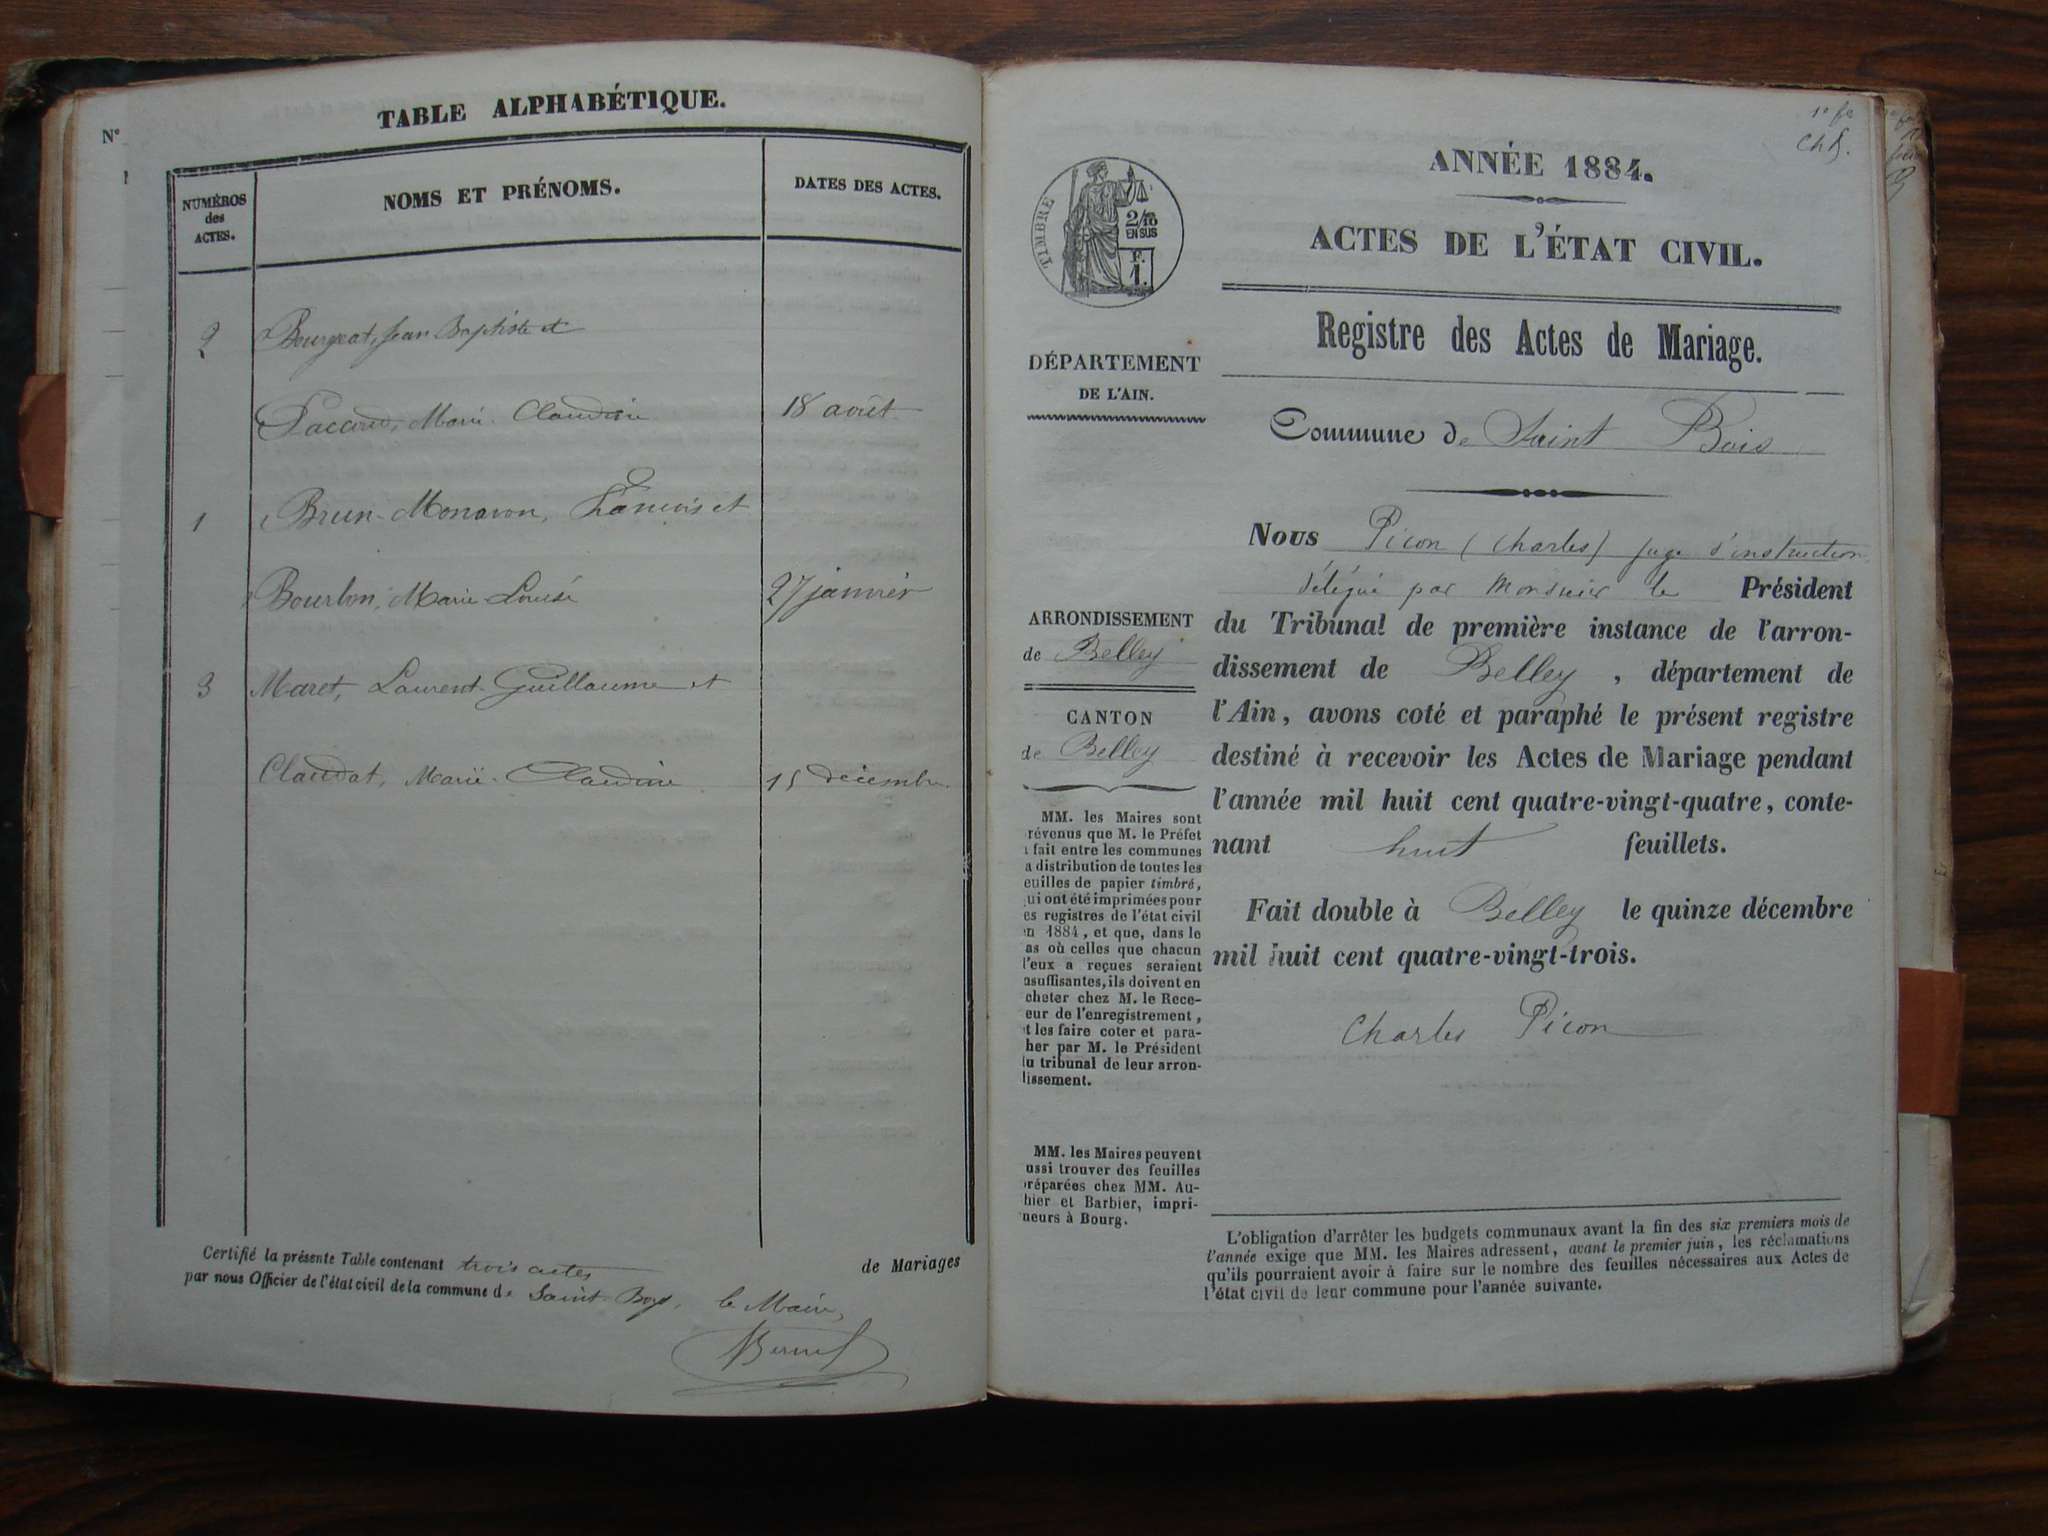 N°
TABLE ALPHABÉTIQUE.
NUMÉROS
des
ACTES.
NOMS ET PRÉNOMS.
DATES DES ACTES.
2 Bourgeat, Jean Baptiste et
Paccard, Marie Claudine 18 août
1 Brun-Monavon, François et
Bourbon, Marie Louise 27 janvier
3 Maret, Laurent Guillaume et
Claudat, Marie Claudine 15 décembre
Certifié la présente Table contenant trois actes de Mariages
par nous Officier de l'état civil de la commune de Saint Bois, le Maire,
1e fe
Ch P.
TIMBRE
2/10
EN SUS
F.
1.
ANNÉE 1884.
ACTES DE L'ÉTAT CIVIL.
Registre des Actes de Mariage.
DÉPARTEMENT
DE L'AIN.
Commune de Saint Bois
ARRONDISSEMENT
de Belley
CANTON
de Belley
MM. les Maires sont
révenus que M. le Préfet
a fait entre les communes
a distribution de toutes les
euilles de papier timbré,
ui ont été imprimées pour
es registres de l'état civil
n 1884, et que, dans le
as où celles que chacun
l'eux a reçues seraient
nsuffisantes, ils doivent en
cheter chez M. le Rece-
eur de l'enregistrement,
t les faire coter et para-
her par M. le Président
u tribunal de leur arron-
lissement.
MM. les Maires peuvent
ussi trouver des feuilles
réparées chez MM. Au-
hier et Barbier, impri-
neurs à Bourg.
Nous Picon (Charles) juge d'instruction
délégué par Monsieur le Président
du Tribunal de première instance de l'arron-
dissement de Belley, département de
l'Ain, avons coté et paraphé le présent registre
destiné à recevoir les Actes de Mariage pendant
l'année mil huit cent quatre-vingt-quatre, conte-
nant huit feuillets.
Fait double à Belley le quinze décembre
mil huit cent quatre-vingt-trois.
Charles Picon
L'obligation d'arrêter les budgets communaux avant la fin des six premiers mois de
l'année exige que MM. les Maires adressent, avant le premier juin, les réclamations
qu'ils pourraient avoir à faire sur le nombre des feuilles nécessaires aux Actes de
l'état civil de leur commune pour l'année suivante.